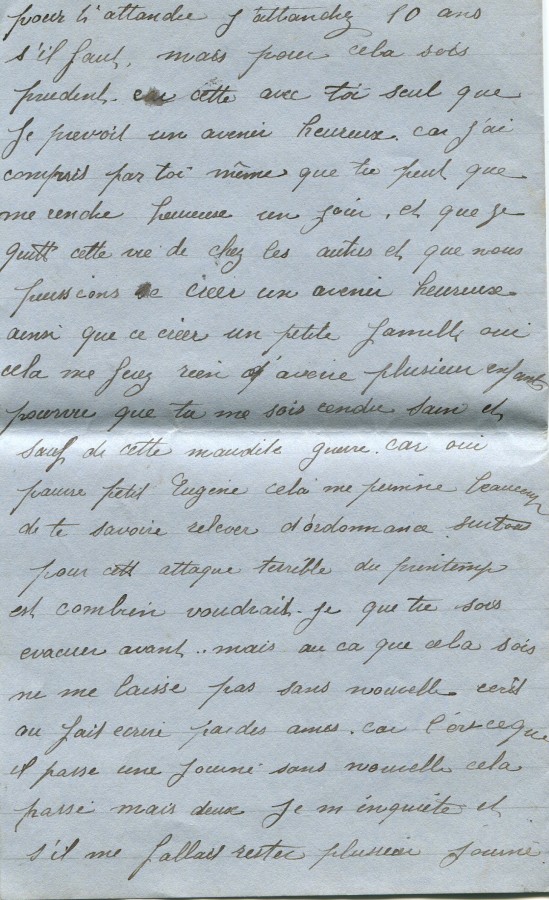 pour t'attandre J'attandrez 10 ans
s'il faut, mais pour cela sois
prudent. cette avec toi seul que
Je prevoit un avenir heureux. car j'ai
compris par toi même que tu peut que
me rendre heureuse un jour, et que je
quitt cette vie de chez les autres et que nous
puissions ce creer un avenir heureux
ainsi que ce creer un petite famille oui
cela me ferez rien d'avoire plusieur enfant
pourvu que tu me sois rendu sain et
sauf de cette maudite guerre. car oui
pauvre petit Eugène cela me penine beaucoup
de te savoire relever d'ordonnance surtout
pour cett attaque terrible du printemp
est combien voudrait-je que tu sois
evacuer avant.. mais au ca que cela sois
ne me laisse pas sans nouvelle ecrit
ou fait ecrire par des amis. car lorsceque
il passe une journé sans nouvelle cela
passe mais deux Je m'inquiète et
s'il me fallait rester plusieur journé